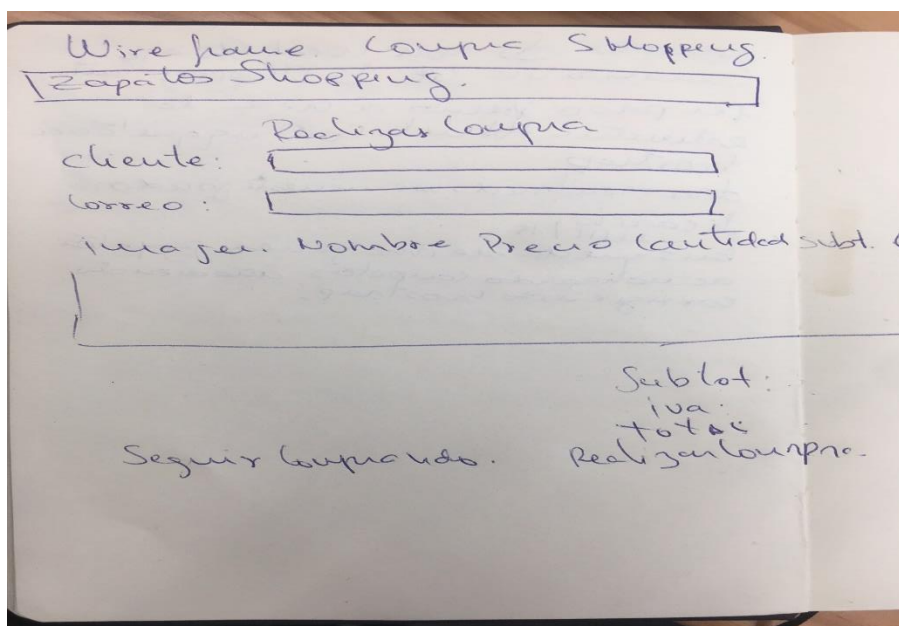 Wireframe. Compra Shopping.
Zapatos Shopping.
Realizar Compra
cliente:
Correo:
imagen. Nombre Precio Cantidad subt.
Subtot:
iva.
total
Seguir Comprando. Realizar Compra.